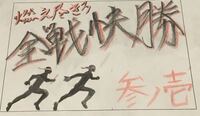 燃え尽きろ
全戦快勝
参ノ壱